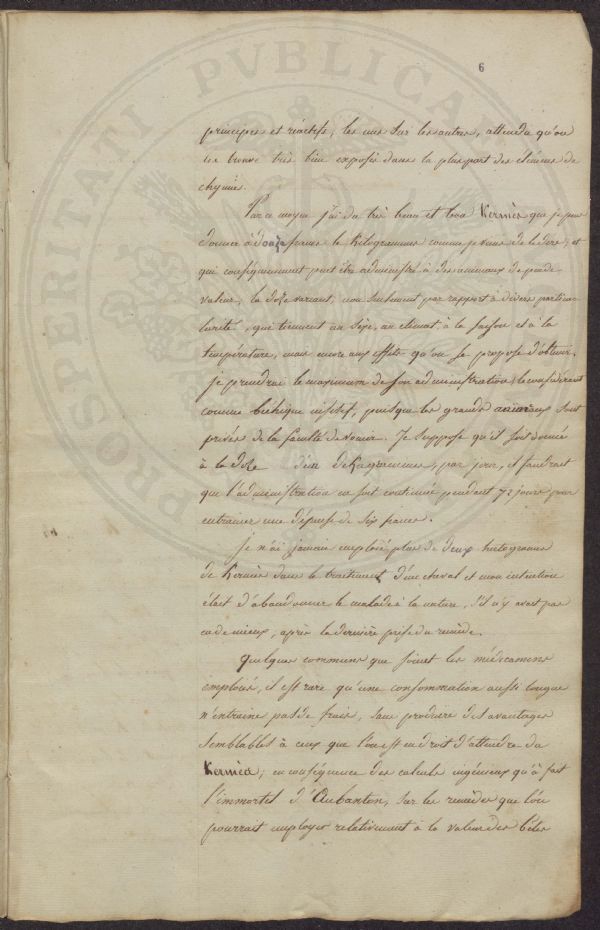 PROSPERITATI PUBLICAE
6
principes et réactifs, les uns sur les autres, attendu qu'on
les trouve très bien exposés dans la pluspart des élémens de
chymie.
Par ce moyen j'ai du très beau et bon Kermès que je puis
donner à douze francs le Kilogramme comme je viens de le dire, et
qui conséquemment peut être administré à des animaux de peu de
valeur, la dose variant, non seulement par rapport à divers particu
larités, que tiennent au sexe, au climat, à la saison et à la
température, mais encore aux effets qu'on se propose d'obtenir.
je prendrai le maximum de son administration le considérant
comme béchique incisif, puisque les grands animaux sont
privés de la faculté de vomir. Je suppose qu'il soit donné
à la dose d'un dékagramme, par jour, il faudrait
que l'administration en fut continuée pendant 72 jours pour
entrainer une dépense de six francs.
je n'ai jamais emploié plus de deux hectogrammes
de Kermès dans le traitement d'un cheval et mon intention
était d'abandonner le malade à la nature, s'il n'y avait pas
eu de mieux, après la dernière prise du remède.
Quelques communs que soient les médicamens
emploiés, il est rare qu'une consommation aussi longue
n'entraine pas de frais, sans produire des avantages
semblables à ceux que l'on est en droit d'attendre du
Kermès; en conséquence des calculs ingénieux qu'a fait
l'immortel d'Aubanton, sur les remèdes que l'on
pourrait employer relativement à la valeur des bêtes